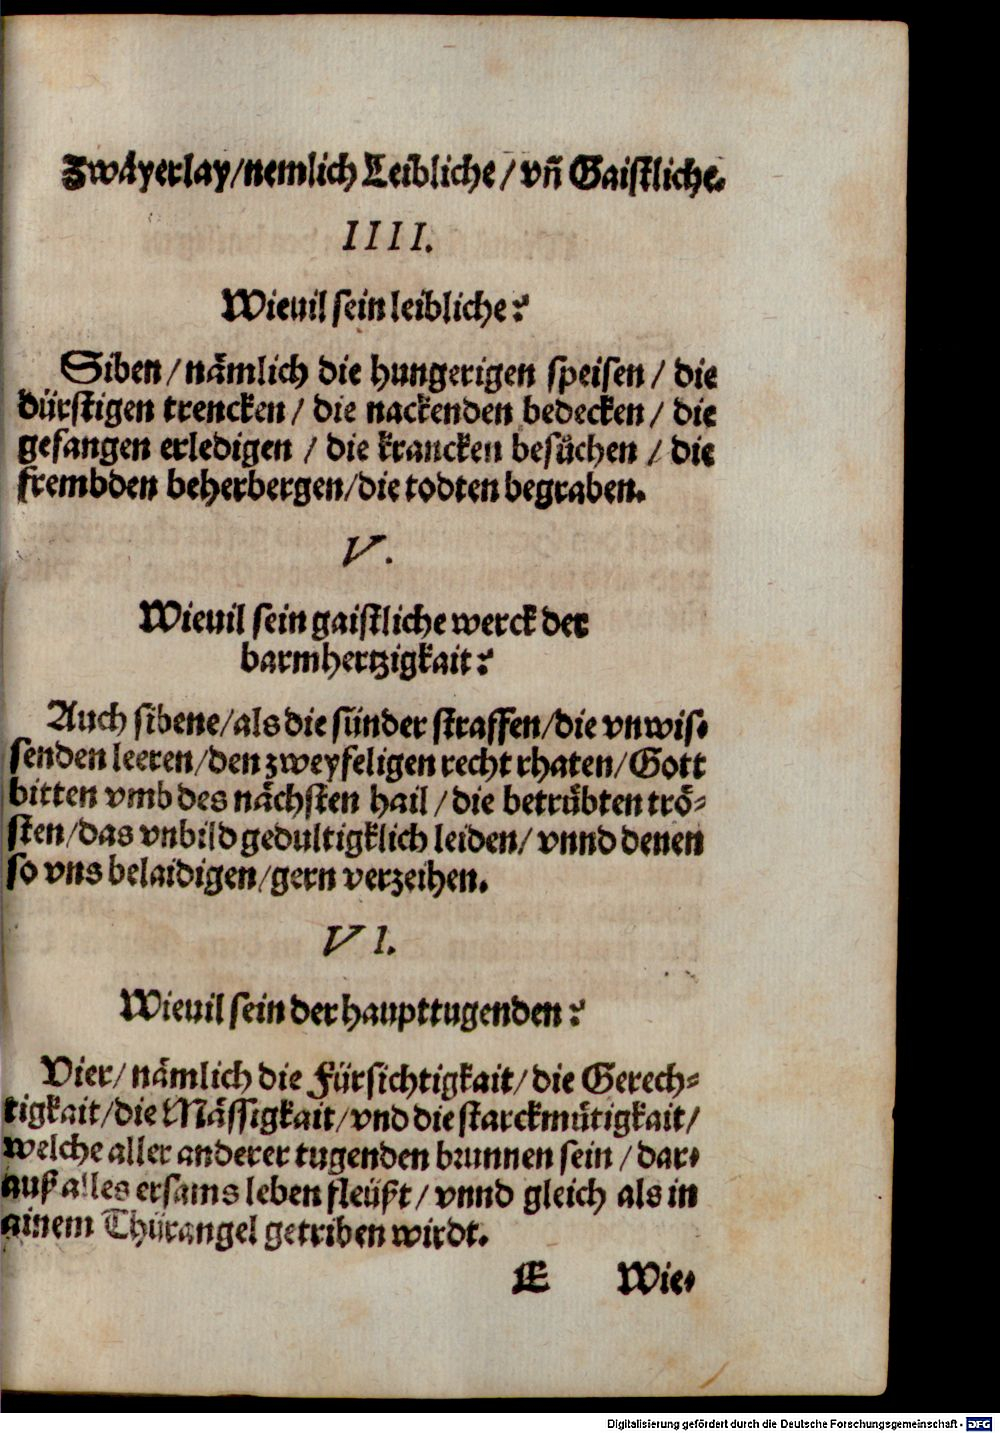 Zwäyerlay/nemlich Leibliche/ vñ Gaistliche.
IIII.
Wieuil sein leibliche?
Siben/ nämlich die hungerigen speisen/ die
dürstigen trencken/ die nackenden bedecken/ die
gefangen erledigen / die krancken besuͦchen / die
frembden beherbergen/die todten begraben.
V.
Wieuil sein gaistliche werck der
barmhertzigkait?
Auch sibene/als die sünder straffen/die vnwis-
senden leeren/den zweyfeligen recht rhaten/Gott
bitten vmb des nächsten hail /die betruͤbten trö-
sten/das vnbild gedultigklich leiden/ vnnd denen
so vns belaidigen/gern verzeihen.
VI.
Wieuil sein der haupttugenden?
Vier/ nämlich die Fürsichtigkait/ die Gerech-
tigkait/die Mässigkait/vnd die starckmuͤtigkait/
welche aller anderer tugenden brunnen sein / dar-
auß alles ersams leben fleüßt/ vnnd gleich als in
ainem Thürangel getriben wirdt.
E Wie-
Digitalisierung gefördert durch die Deutsche Forschungsgemeinschaft - DFG